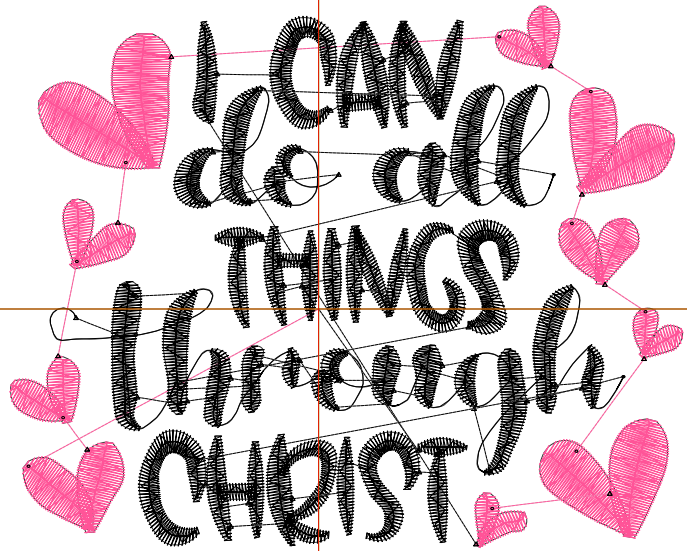 I CAN
do all
THINGS
through
CHRIST